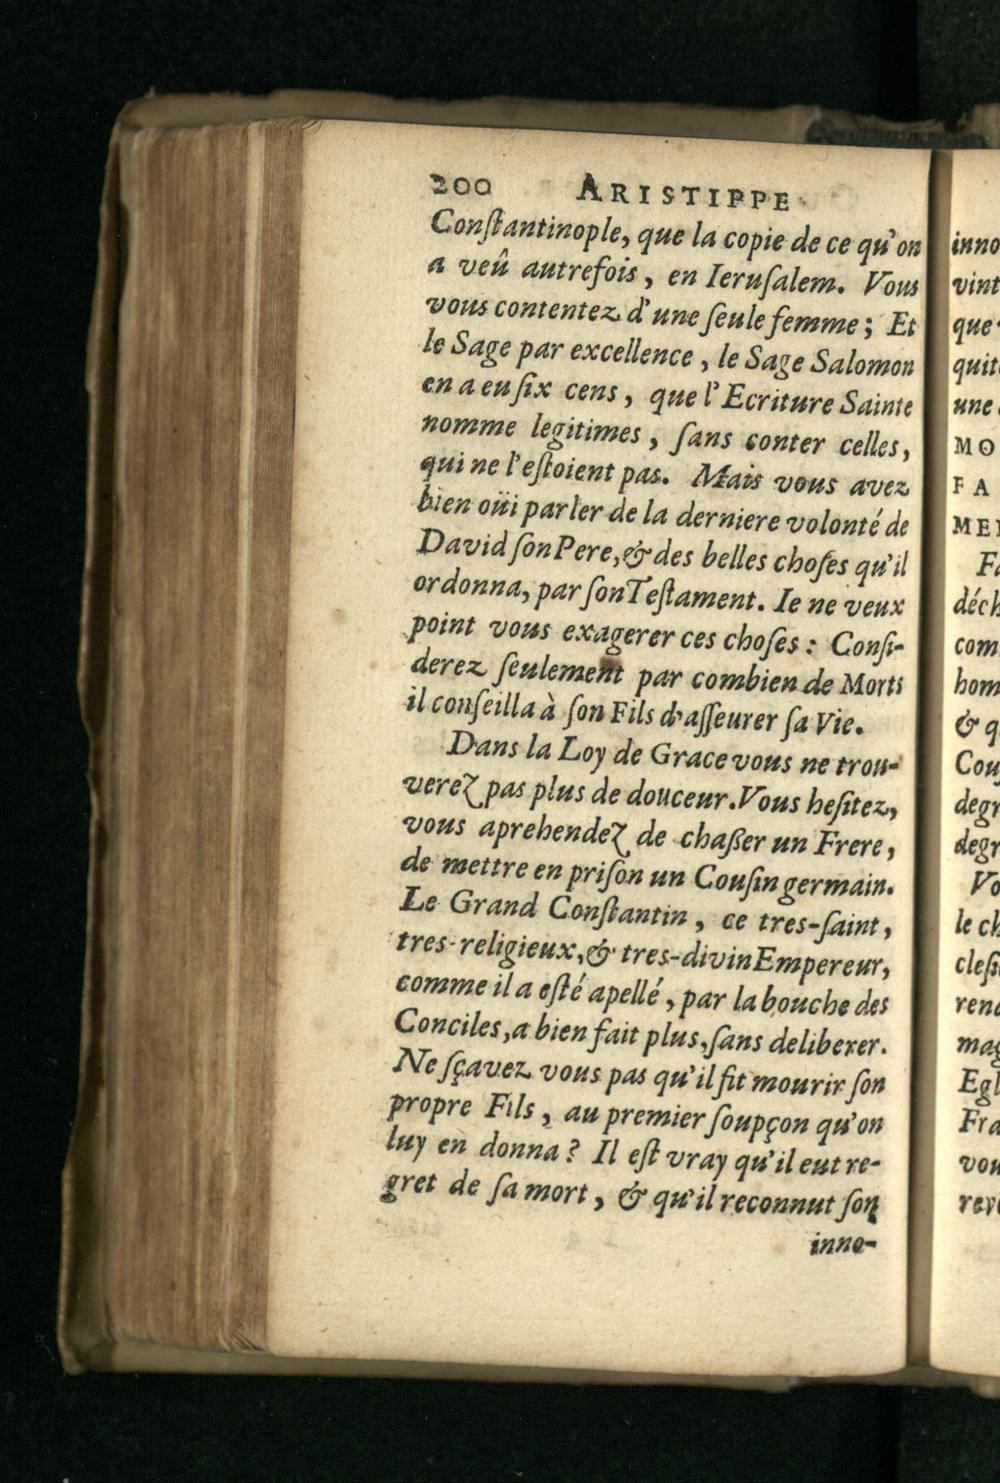 200 ARISTIPPE
Conſtantinople, que la copie de ce qu'on
a veû autrefois, en Ieruſalem. Vous
vous contentez d'une ſeule femme; Et
le Sage par excellence, le Sage Salomon
en a eu ſix cens, que l'Ecriture Sainte
nomme legitimes, ſans conter celles,
qui ne l'eſtoient pas. Mais vous avez
bien oüi parler de la derniere volonté de
David ſon Pere, & des belles choſes qu'il
ordonna, par ſon Teſtament. Ie ne veux
point vous exagerer ces choſes: Conſi-
derez ſeulement par combien de Morts
il conſeilla à ſon Fils d'aſſeurer ſa Vie.
Dans la Loy de Grace vous ne trou-
verez pas plus de douceur. Vous heſitez,
vous aprehendez de chaßer un Frere,
de mettre en priſon un Couſin germain.
Le Grand Conſtantin, ce tres-ſaint,
tres-religieux, & tres-divin Empereur,
comme il a eſté apellé, par la bouche des
Conciles, a bien fait plus, ſans deliberer.
Ne ſçavez vous pas qu'il fit mourir ſon
propre Fils, au premier ſoupçon qu'on
luy en donna? Il eſt vray qu'il eut re-
gret de ſa mort, & qu'il reconnut ſon
inno-
inno
vint
que
quit
une
MO
FA
ME
Fa
déch
com
hom
& q
Couſ
degr
degr
Vo
le ch
cleſi
rend
mag
Egl
Fra
vou
reve